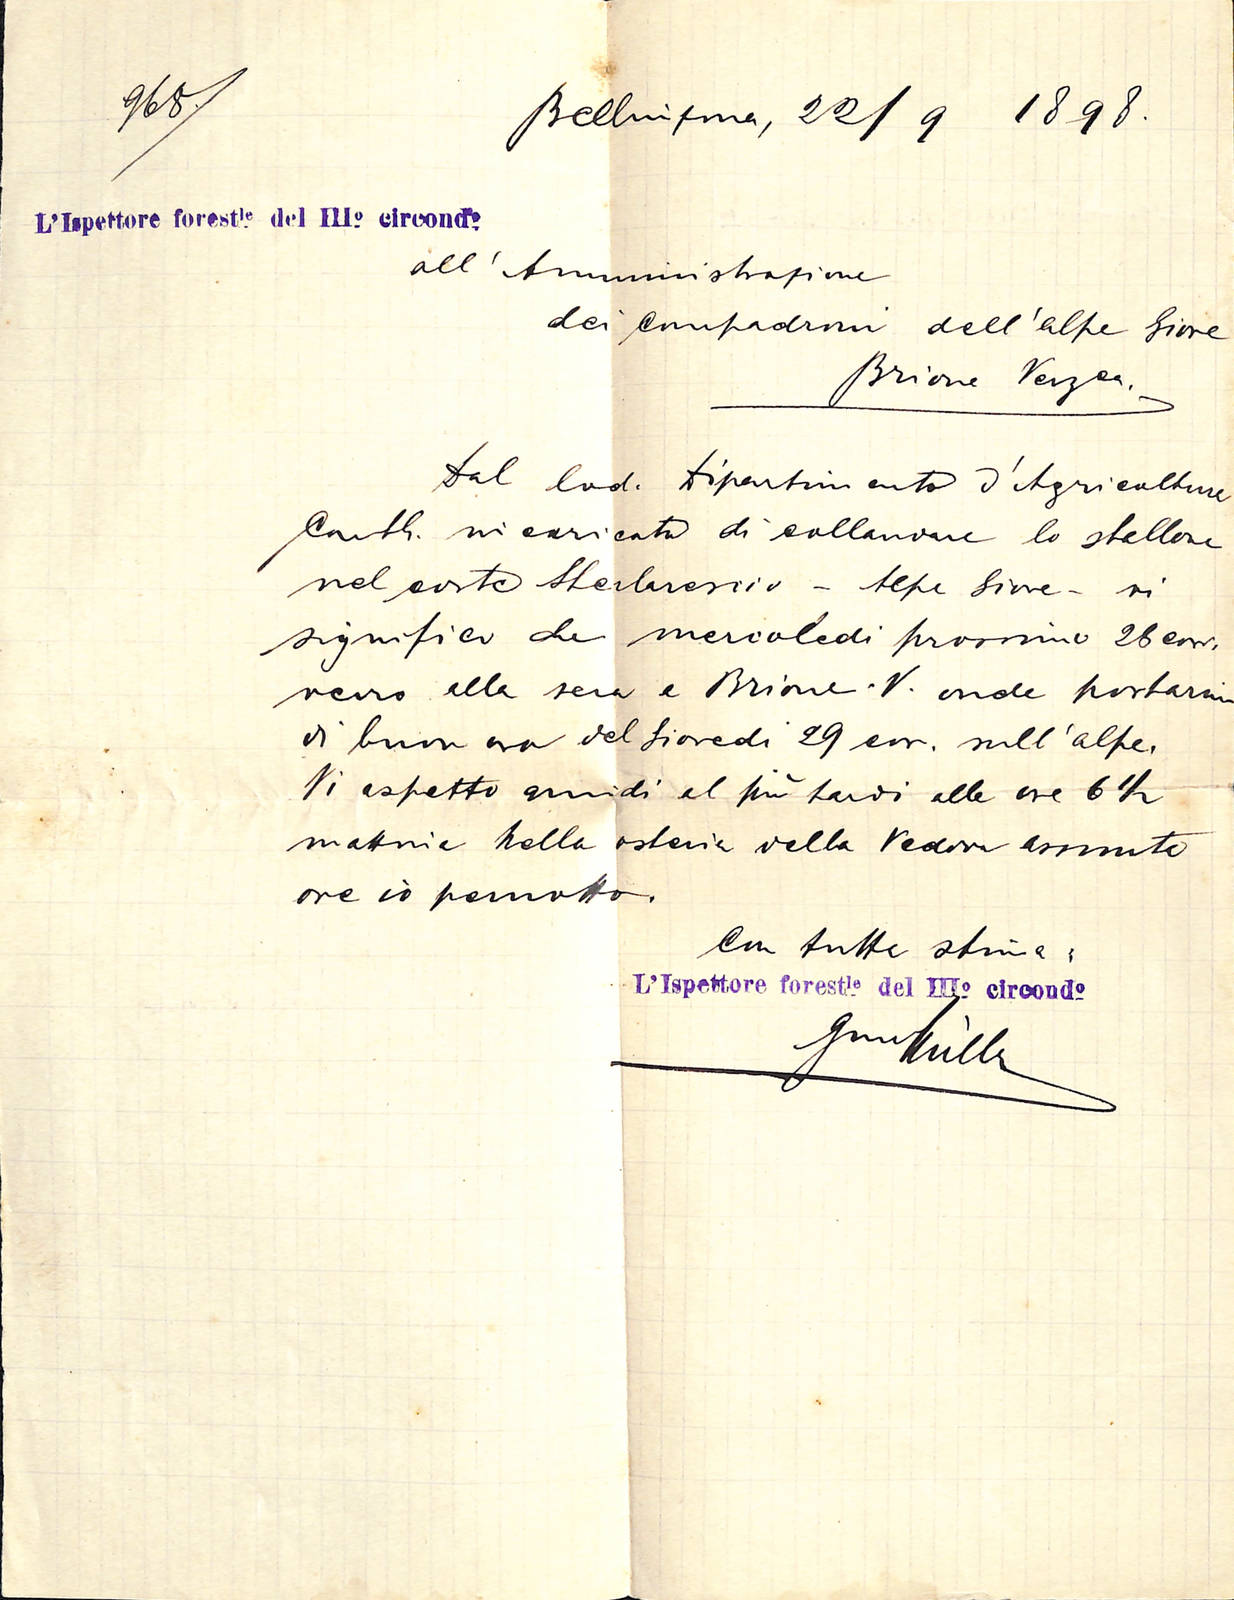 968.
Bellinzona, 22/9 1898.
L'Ispettore forest<sup>le</sup> del III<sup>o</sup> circond<sup>o</sup>
all'Amministrazione
dei compadroni dell'alpe Giove
Brione Verzca.
Dal lod. Dipartimento d'Agricoltura
Canto. incaricato di collaudare lo stallone
nel corte - Alpe Giove - vi
significo che mercoledi prossimo 28 corr.
verro alla sera a Brione-V. onde portarmi
di buon ora del Giovedi 29 cor. sull'alpe.
Vi aspetto quindi al più tardi alle ore 6 ½
mattina nella osteria della Vedova
ove iò pernotto.
Con tutta stima:
L'Ispettore forest<sup>le</sup> del III<sup>o</sup> circond<sup>o</sup>